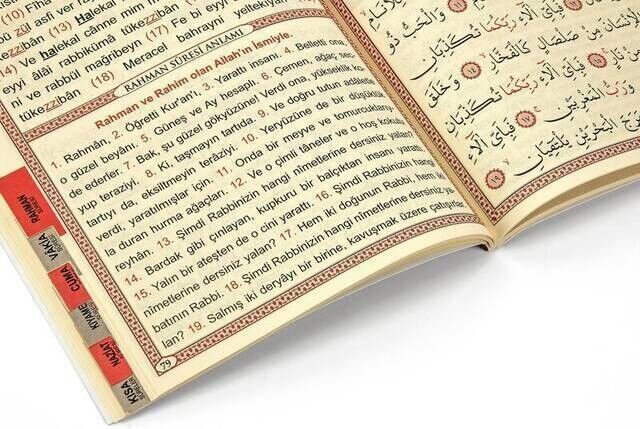 zül asfi ver
zzibân (13) Halekal
(14) Ve halekal cânne min
eyyi âlâi rabbikümâ tükezzibân
ni ve rabbül mağribeyn (17) Fe bi eyyi
tükezzibân (18) Meracel bahrayni yeltekiyân
RAHMAN SÛRESİ ANLAMI
Rahman ve Rahim olan Allah'ın İsmiyle.
1. Rahmân, 2. Öğretti Kur'an'ı. 3. Yarattı insanı. 4. Belletti ona
o güzel beyânı. 5. Güneş ve Ay hesaplı. 6. Çemen, ağaç sec-
de ederler. 7. Bak, şu güzel gökyüzüne! Verdi ona, yükseklik ko-
yup teraziyi. 8. Ki, taşmayın tartıda. 9. Ve doğru tutun adâletle
tartıyı da, eksiltmeyin terâziyi. 10. Yeryüzüne de bir düşüklük
verdi, yaratılmışlar için. 11. Onda bir meyve ve tomurcuklanıp
duran hurma ağaçları. 12. Ve o çimli tâneler ve o hoş kokulu
reyhân. 13. Şimdi Rabbinizin hangi nîmetlerine dersiniz yalan?
14. Bardak gibi çınlayan, kupkuru bir balçıktan insanı yarattı.
15. Yalın bir ateşten de o cini yarattı. 16. Şimdi Rabbinizin hangi
nîmetlerine dersiniz yalan? 17. Hem iki doğunun Rabbi, hem iki
batının Rabbi. 18. Şimdi Rabbinizin hangi nîmetlerine dersiniz ya-
lan? 19. Salmış iki deryâyı bir birine, kavuşmak üzere çatışırlar.
79
RAHMAN SÛRESİ
VAKIA
CUMA
KIYAME
NAZİAT
KISA SÛRELER
وَالْحَبُّ ذُو
رَبِّكُمَا تُكَذِّبَانِ
مِنْ صَلْصَالٍ كَالْفَخَّارِ ١٤ وَخَلَقَ
فَبِأَيِّ آلَاءِ رَبِّكُمَا تُكَذِّبَانِ ١٦
وَرَبُّ الْمَغْرِبَيْنِ ١٧ فَبِأَيِّ آلَاءِ
الْبَحْرَيْنِ يَلْتَقِيَانِ ١٩